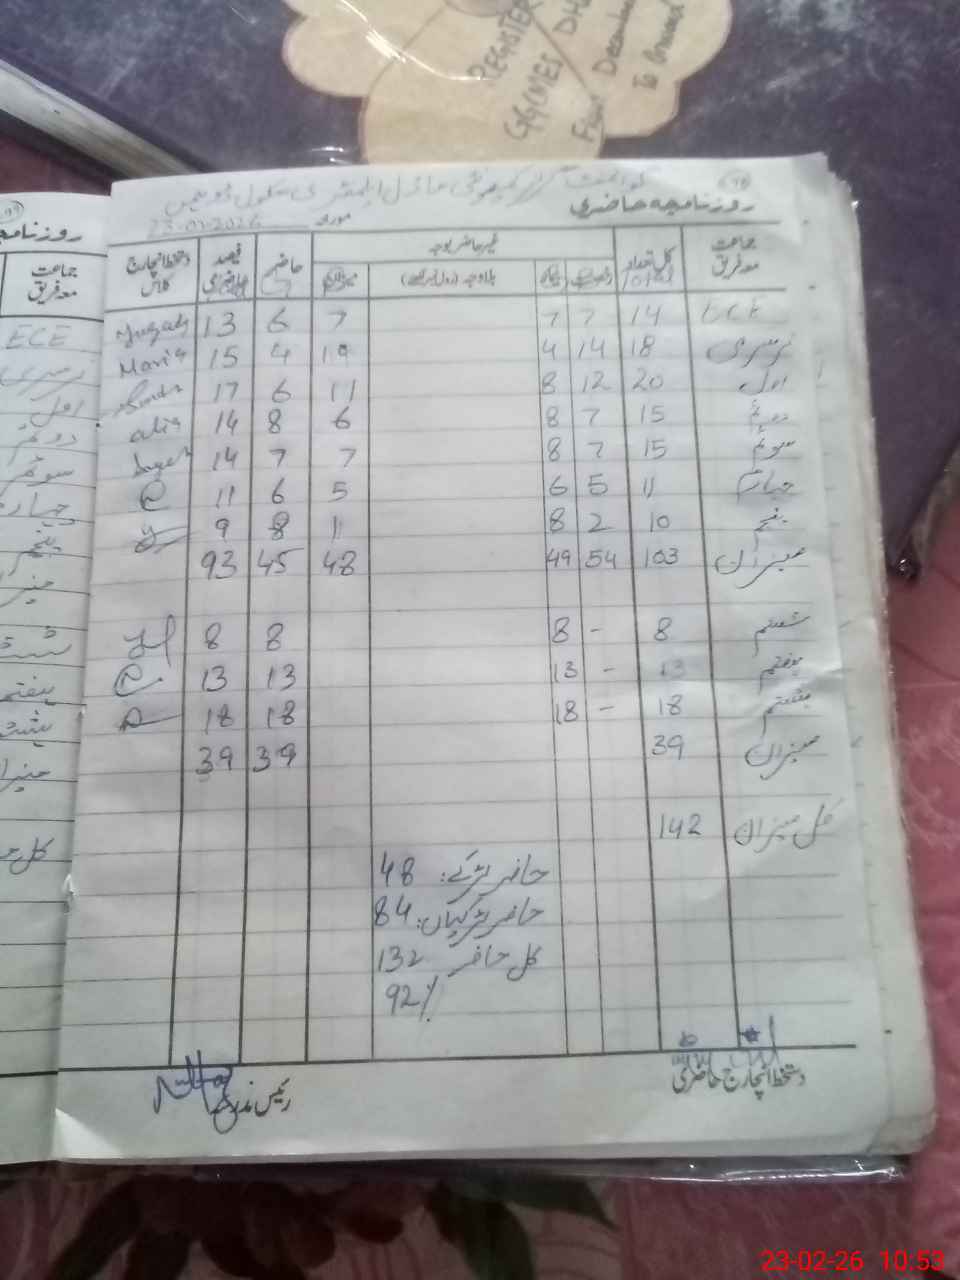 REGISTER
GGCMES DH
From December
To Onward
گورنمنٹ گرلز کمیونٹی ماڈل ایلیمنٹری سکول
روزنامچہ حاضری
مورخہ 23-02-2026
جماعت معہ فریق کل تعداد Total غیر حاضر بوجہ حاضر فیصد حاضری دستخط انچارج کلاس
رخصت بیماری بلاوجہ (رول نمبر لکھیں) میزان
ECE 14 7 7 7 6 13
نرسری 18 14 4 19 4 15 Maria
اول 20 12 8 11 6 17
دوئم 15 7 8 6 8 14 alia
سوئم 15 7 8 7 7 14
چہارم 11 5 6 5 6 11
پنجم 10 2 8 1 8 9
میزان 103 54 49 48 45 93
ششم 8 - 8 8 8
ہفتم 13 - 13 13 13
ہشتم 18 - 18 18 18
میزان 39 39 39
کل میزان 142
حاضر لڑکے: 48
حاضر لڑکیاں: 84
کل حاضر 132
92%
دستخط انچارج حاضری
رئیس مدرسہ
روزنامچہ
جماعت معہ فریق
ECE
نرسری
اول
دوئم
سوئم
چہارم
پنجم
ہفتم
23-02-26 10:53